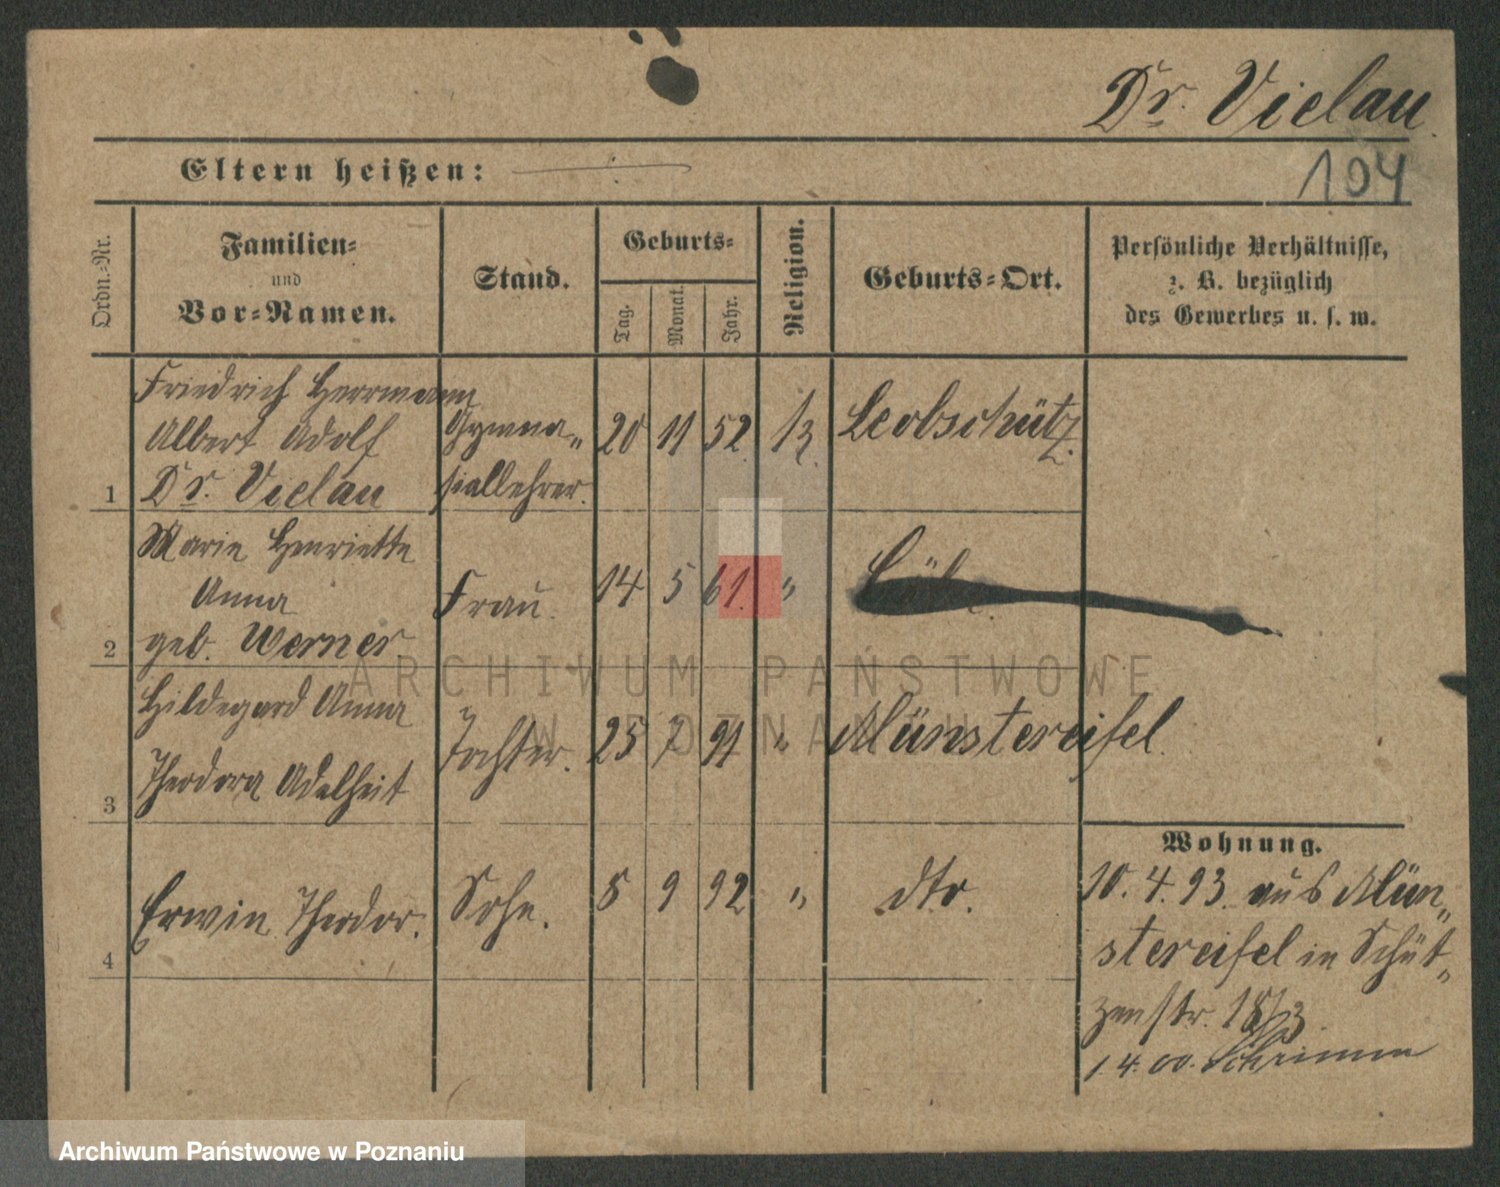 Dr. Vielau.
104
Eltern heißen:
Ordn.-Nr.
Familien-
und
Vor-Namen.
Stand.
Geburts-
Tag.
Monat.
Jahr.
Religion.
Geburts-Ort.
Persönliche Verhältnisse,
z. B. bezüglich
des Gewerbes u. s. w.
Friedrich Herrmann
Albert Adolf
1 Dr. Vielau
Gymna„
siallehrer.
20 11 52. Leobschütz.
Marie Henriette
Anna
2 geb. Werner.
Frau. 14 5 61. "
Hildegard Anna
Theodora Adelheit
3
Tochter. 25 7 91 " Münstereifel.
Erwin Theodor.
4
Sohn. 5 9 92 " dto.
Wohnung.
10.4.93. aus Mün„
stereifel in Schüt„
zenstr.
1.4.00. Schrimm
ARCHIWUM PAŃSTWOWE
W POZNANIU
Archiwum Państwowe w Poznaniu